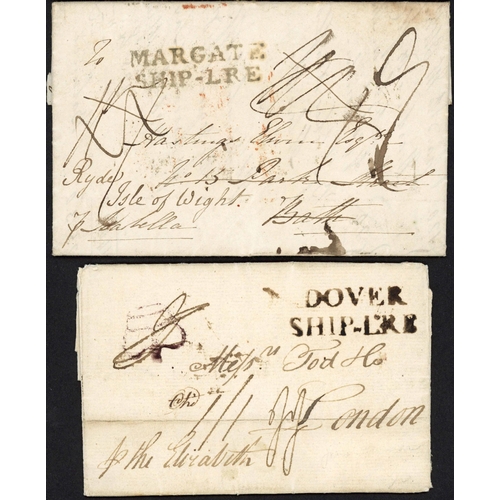 To
MARGATE
SHIP-LRE
Hastings Elwin Esqr
Ryde No 15 Park Street
Isle of Wight. Bath
p Isabella
DOVER
SHIP-LRE
Messrs Tod & Co
London
p the Elizabeth